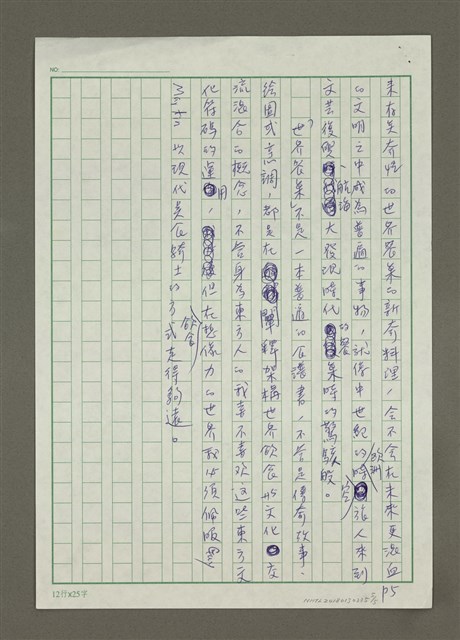 NO:
來有具奇怪的世界餐桌的新奇料理,會不會在未來更混血
的文明之中成為普遍的事物,就像中世紀的歐洲旅人來到
文芸復興、航海大發現時代的餐桌時的驚駭般。
「世界餐桌」不是一本普通的食譜書,不管是傳奇故事、
繪圖或烹調,都是在闡釋架構世界飲食的文化交
流混合的概念,不管身為東方人的我喜不喜歡這些東方文
化符碼的運用,但在想像力的世界我必須佩服
以現代美食騎士的飲食方式走得夠遠。
P5
12行x25字